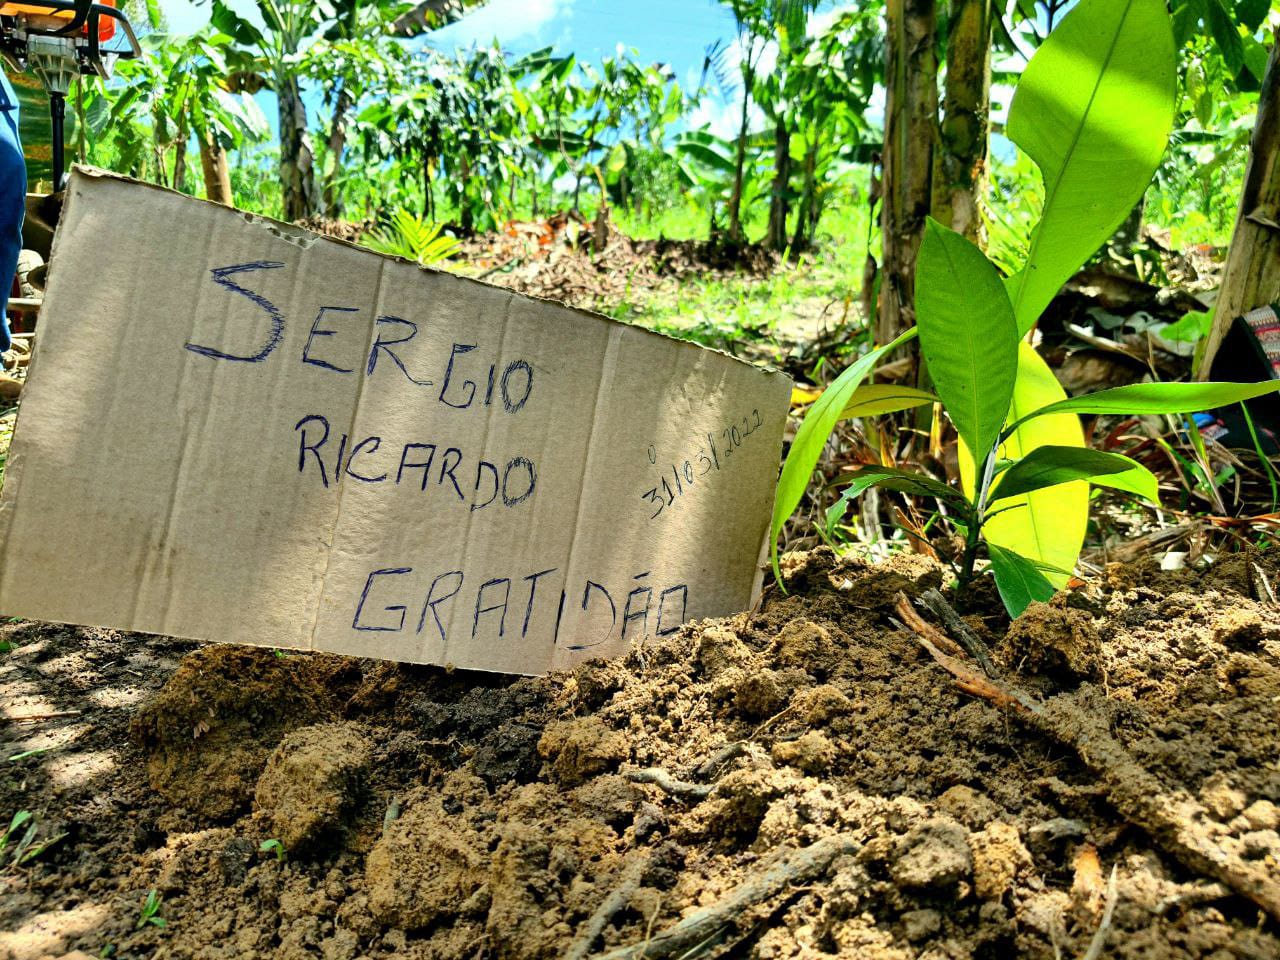 SERGIO
RICARDO
31/03/2022
GRATIDÃO